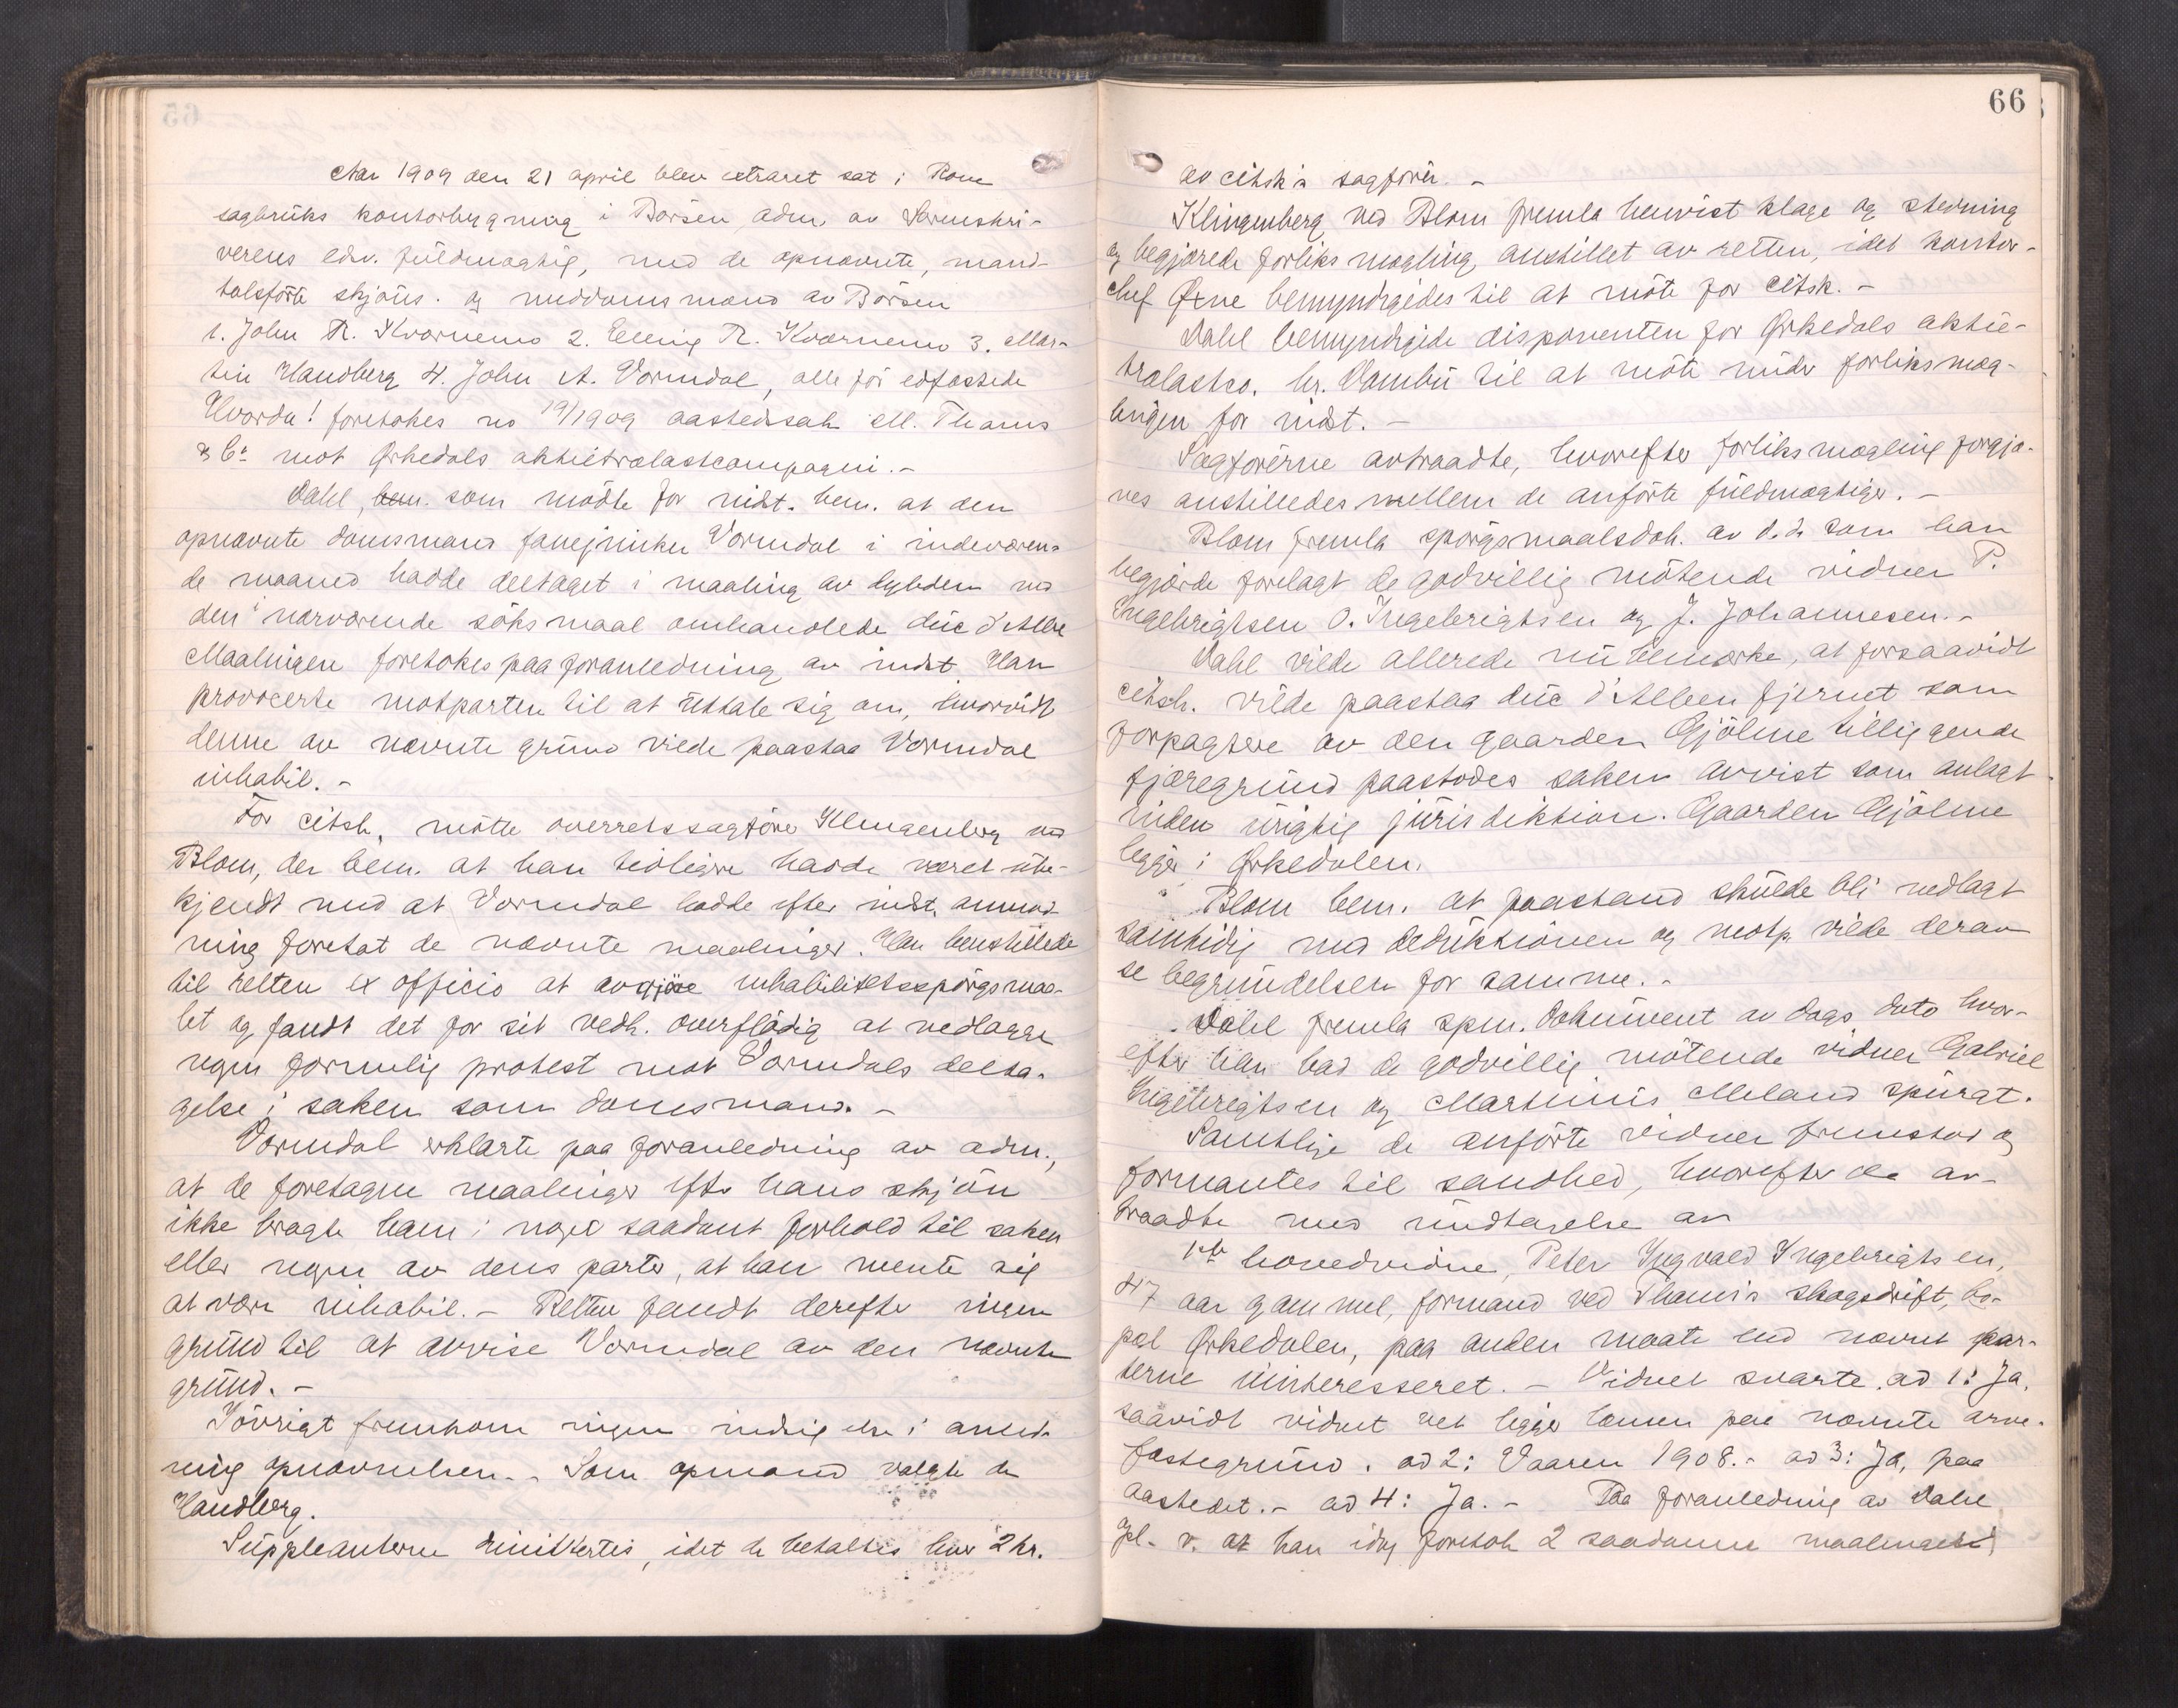 Aar 1909 den 21 april blev extraret sat i Rom
sagbruks kontorbygning i Børsen adm. av Sorenskri-
verens edsv. fuldmægtig, med de opnævnte, mand-
talsførte skjøns. og meddomsmænd av Børsen
1. John R. Kvernmo 2. Elling R. Kværnmo 3. Mar-
tin Handberg 4. John A. Vormdal, alle før edfæstede
Hvorda! foretokes no 19/1909 aastedssak M. Thams
& Co mot Ørkedals aktietrælastcompagni. -
Dahl, som mødte for indst. bem. at den
opnævnte domsmand Vormdal i indeværen-
de maaned hadde deltaget i maaling av dybden ved
den i nærværende søksmaal omhandlede duc d'Albe
Maalingen foretokes paa foranledning av indst. Han
provocerte motparten til at uttale sig om, hvorvidt
denne av nævnte grund vilde paastaa Vormdal
inhabil. -
For citsk. møtte overretssagfører Klingenberg ved
Blom, der bem. at han tidligere hadde været ube-
kjendt med at Vormdal hadde efter indst. anmod-
ning foretat de nævnte maalinger. Han henstillede
til retten ex officio at avgjøre inhabilitetsspørgsmaa-
let og fandt det for sit vedk. overflødig at nedlægge
nogen formelig protest mot Vormdals delta-
gelse i saken som domsmand. -
Vormdal erklærte paa foranledning av adm.,
at de foretagne maalinger efter hans skjøn
ikke bragte ham i noget saadant forhold til saken
eller nogen av dens parter, at han mente sig
at være inhabil. - Retten fandt derefter ingen
grund til at avvise Vormdal av den nævnte
grund. -
Iøvrigt fremkom ingen indsigelse i anled-
ning opnævnelsen. - Som opmand valgte de
Handberg.
Suppleanterne dimitteres, idet de betaltes hver 2 kr.
66
av citsk's sagfører. -
Klingenberg ved Blom fremla henvist klage og stevning
og begjærede forliksmægling anstillet av retten, idet kontor-
chef Øxne bemyndigedes til at møte for citsk. -
Dahl bemyndigede disponenten for Ørkedals aktie-
trælastco. hr. Vambu til at møte under forliksmæg-
lingen for indst. -
Sagførerne avtraadte, hvorefter forliksmægling forgjæ-
ves anstilledes mellem de anførte fuldmægtiger. -
Blom fremla spørgsmaalsdok. av d.d. som han
begjærede forelagt de godvillig møtende vidner P.
Ingebrigtsen O. Ingebrigtsen og J. Johannesen. -
Dahl vilde allerede nu bemærke, at forsaavidt
citsk. vilde paastaa duc d'Alben fjernet som
forpagtere av den gaarden Gjølme tilliggende
fjæregrund paastodes saken avvist som anlagt
inden urigtig jurisdiktion. Gaarden Gjølme
ligger i Ørkedalen.
Blom bem. at paastand skulde bli nedlagt
samtidig med deduktionen og motp. vilde derav
se begrundelsen for samme. -
Dahl fremla spm. dokument av dags dato hvor-
efter han bad de godvillig møtende vidner Gabriel
Ingebrigtsen og Martinus Meland spurgt.
Samtlige de anførte vidner fremstod og
formantes til sandhed, hvorefter de av-
traadte med undtagelse av
1ste hovedvidne, Peter Ingvald Ingebrigtsen,
47 aar gammel, formand ved Thams's skogsdrift, bo-
pæl Ørkedalen, paa anden maate end nævnt par-
terne uinteresseret. - Vidnet svarte. ad 1: Ja,
saavidt vidnet vet ligger tomten paa nævnte arve-
fæstegrund. ad 2: Vaaren 1908. - ad 3: Ja, paa
aastedet. - ad 4: Ja. - Paa foranledning av Dahl
fkl. v. at han idag foretok 2 saadanne maalinger